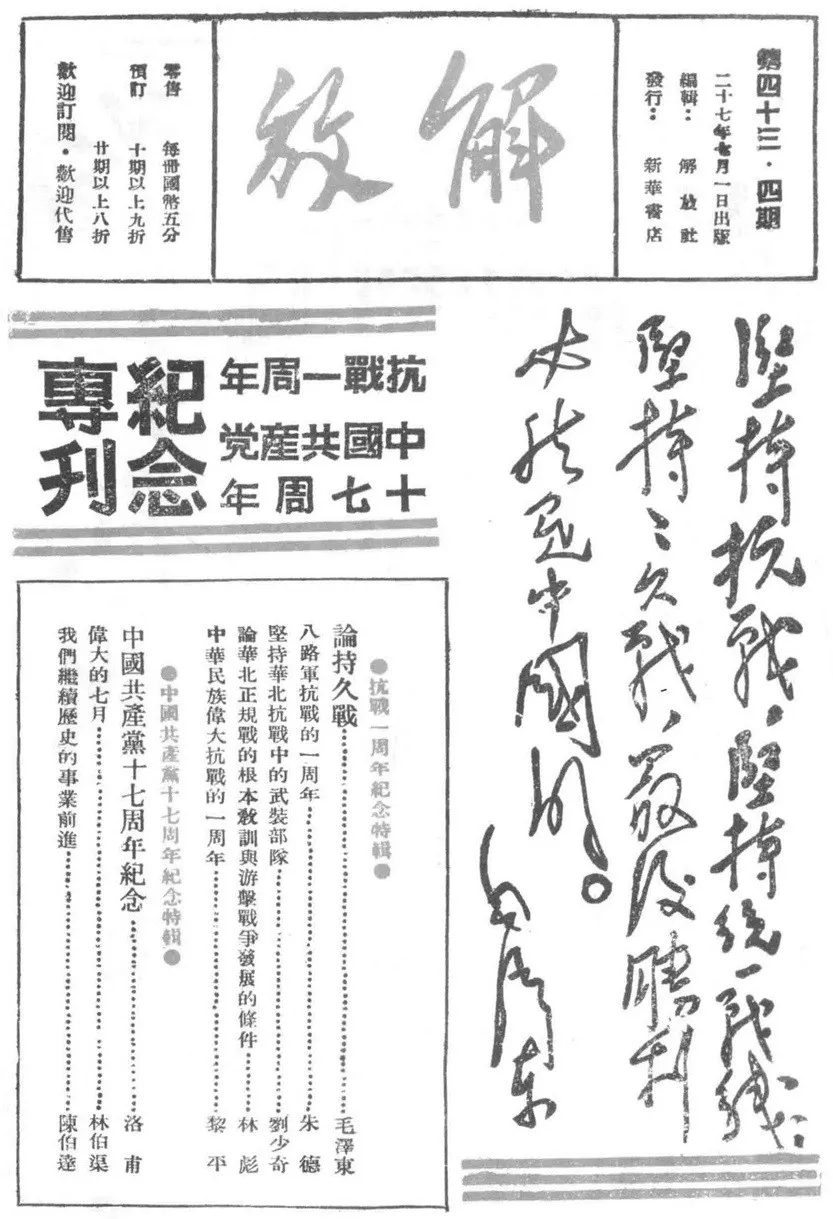 第四十三·四期
二十七年七月一日出版
編輯：解放社
發行：新華書店
解放
零售 每冊國幣五分
預訂 十期以上九折
廿期以上八折
歡迎訂閱·歡迎代售
堅持抗戰、堅持統一戰綫、
堅持〻久戰、最後勝利
必然是中國的。
毛澤東
抗戰一周年
中國共産党
十七周年
紀念
專刊
●抗戰一周年紀念特輯●
論持久戰……毛澤東
八路軍抗戰的一周年……朱德
堅持華北抗戰中的武裝部隊……劉少奇
論華北正規戰的根本教訓與游擊戰爭發展的條件……林彪
中華民族偉大抗戰的一周年……黎平
●中國共產黨十七周年紀念特輯●
中國共產黨十七周年紀念……洛甫
偉大的七月……林伯渠
我們繼續歷史的事業前進……陳伯達